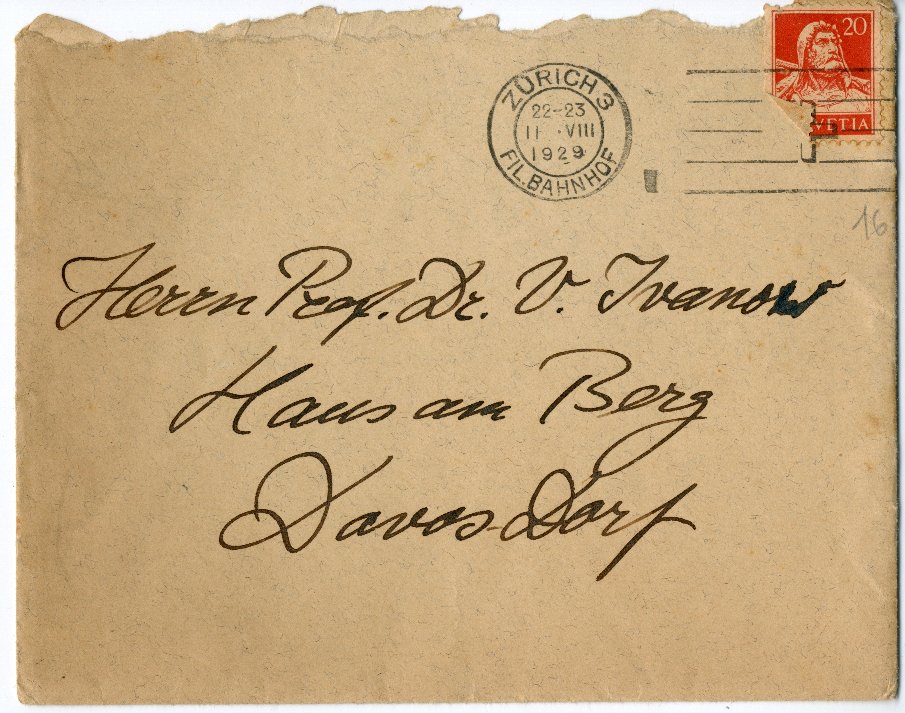 20
ZÜRICH 3
22-23
11 · VIII
1929
FIL. BAHNHOF
16
Herrn Prof. Dr. V. Ivanow
Haus am Berg
Davos-Dorf